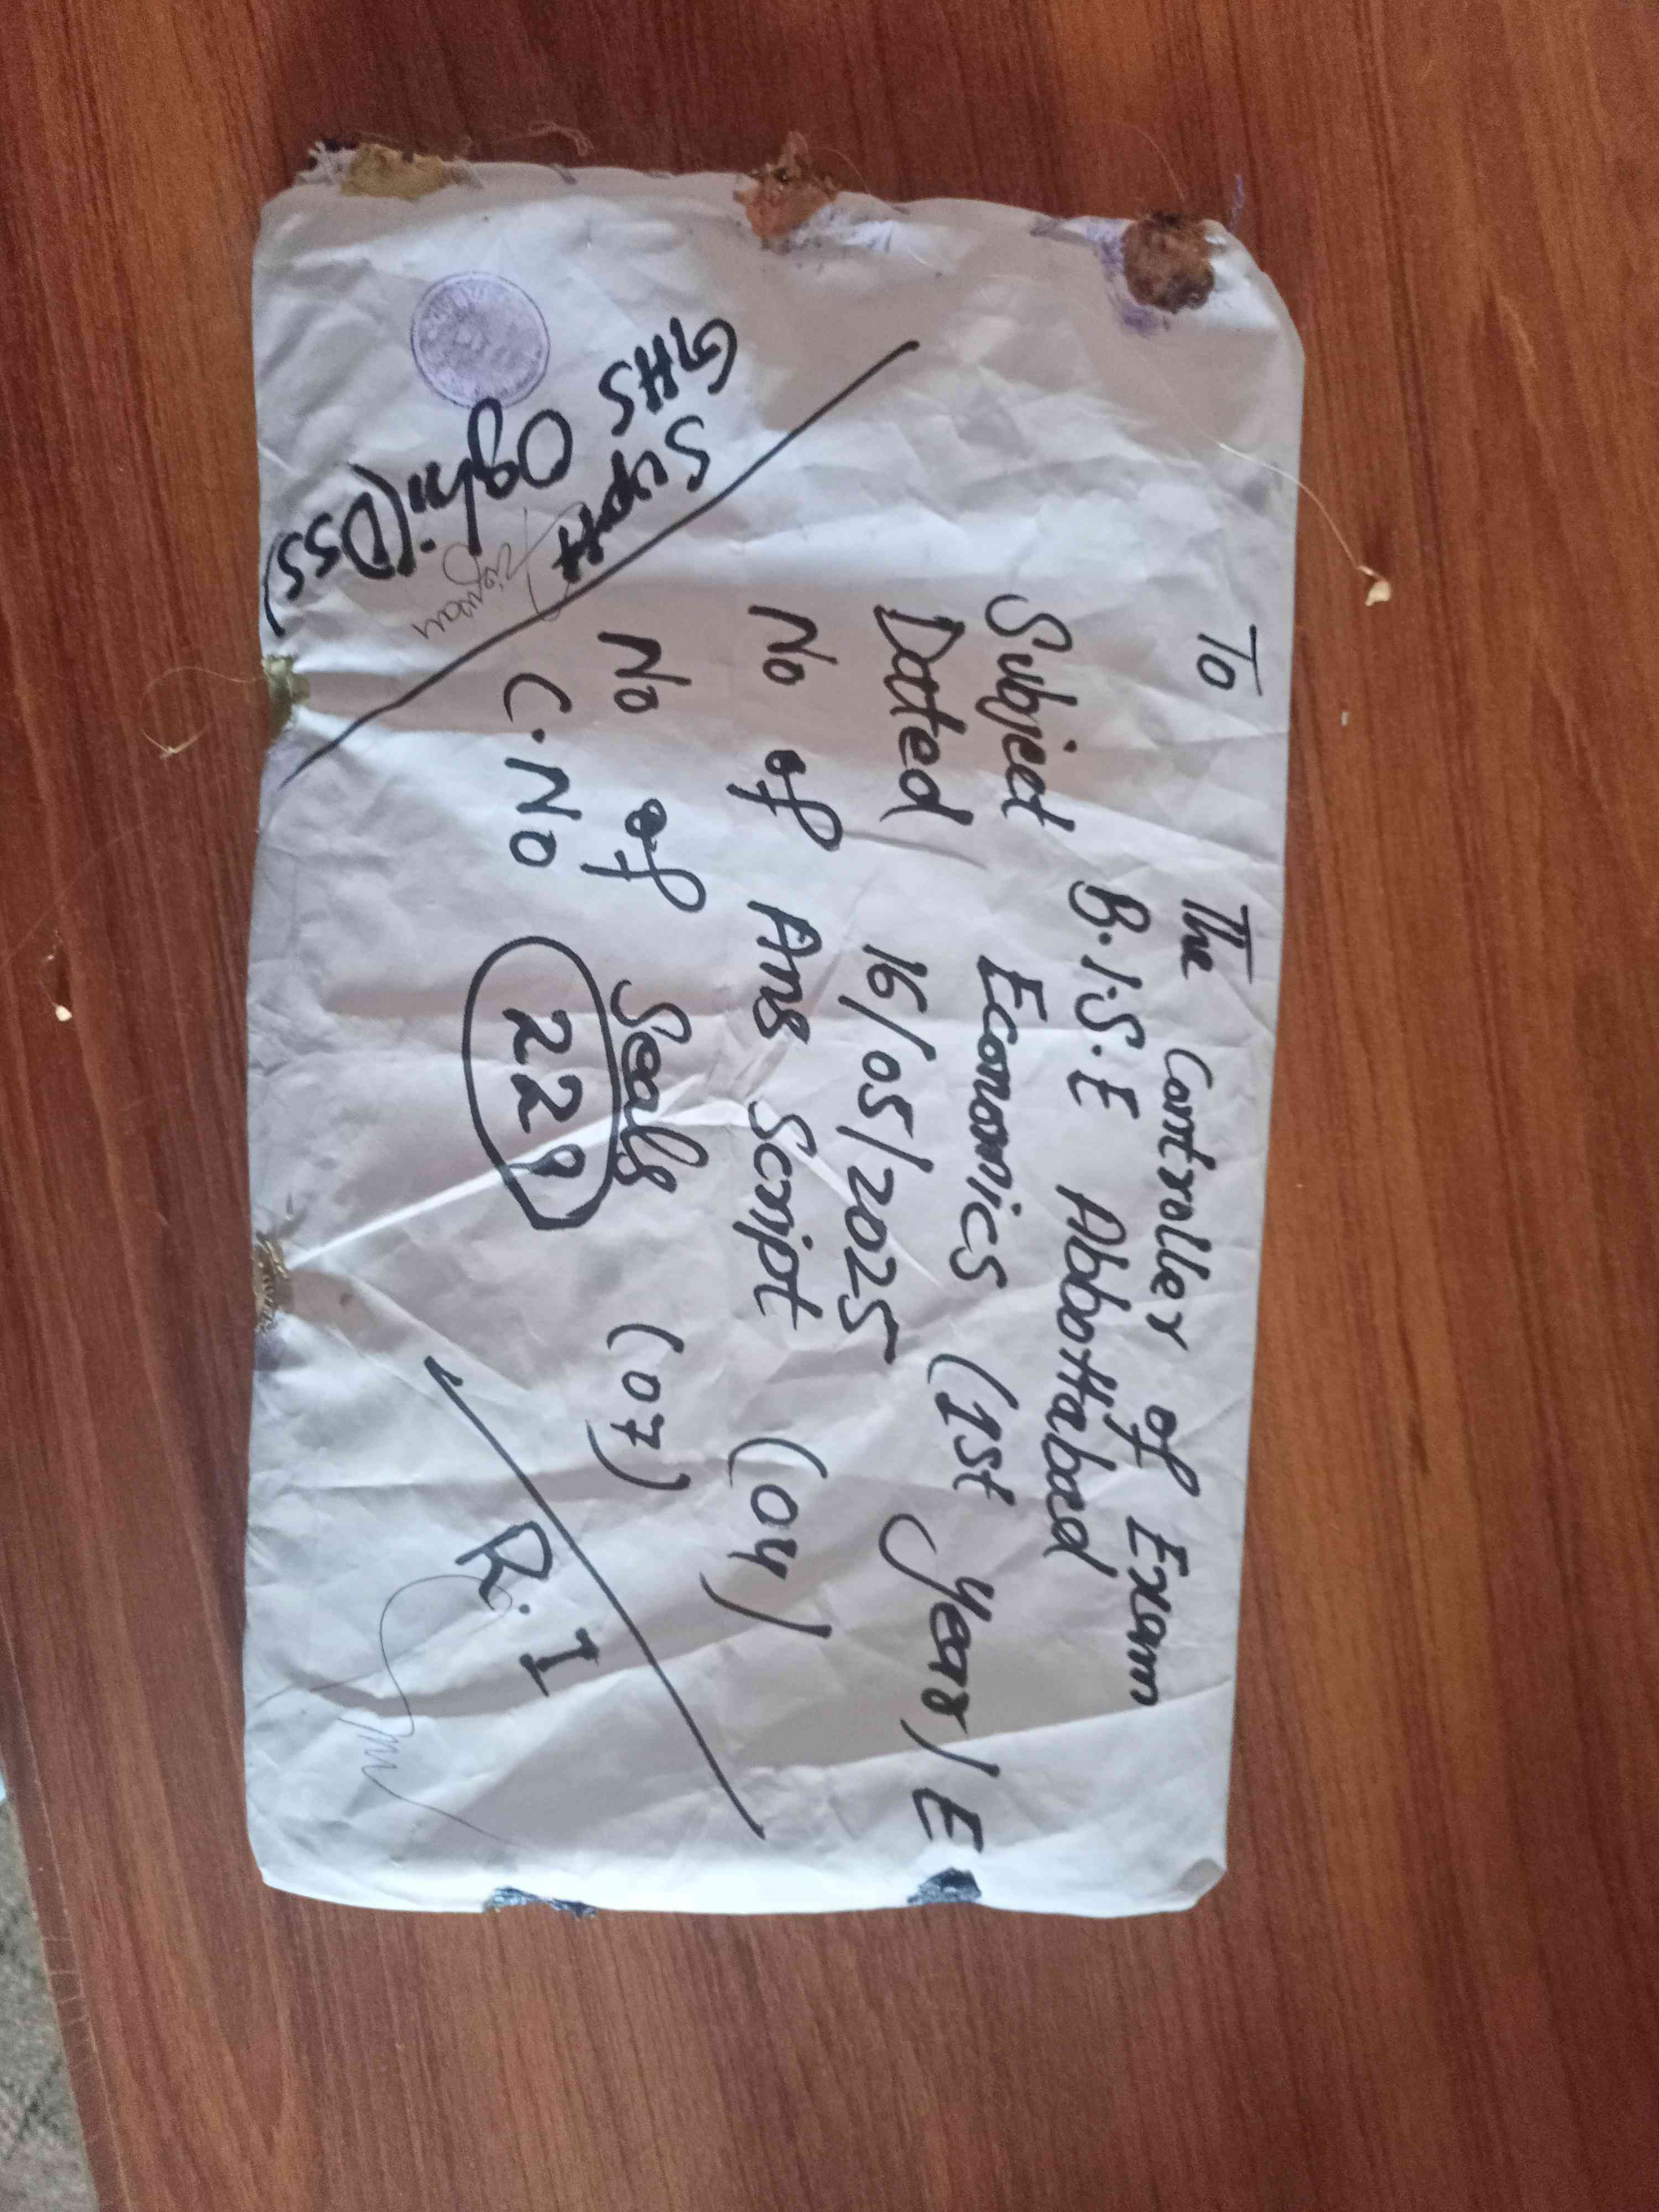 To
The Controller of Exam
B.I.S.E Abbottabad
Subject Economics (1st Year) E
Dated 16/05/2025
No of Ans Script (04)
No of Seals (07)
C.No 228
Suptt
GHS Oghi (DSS)
R.I